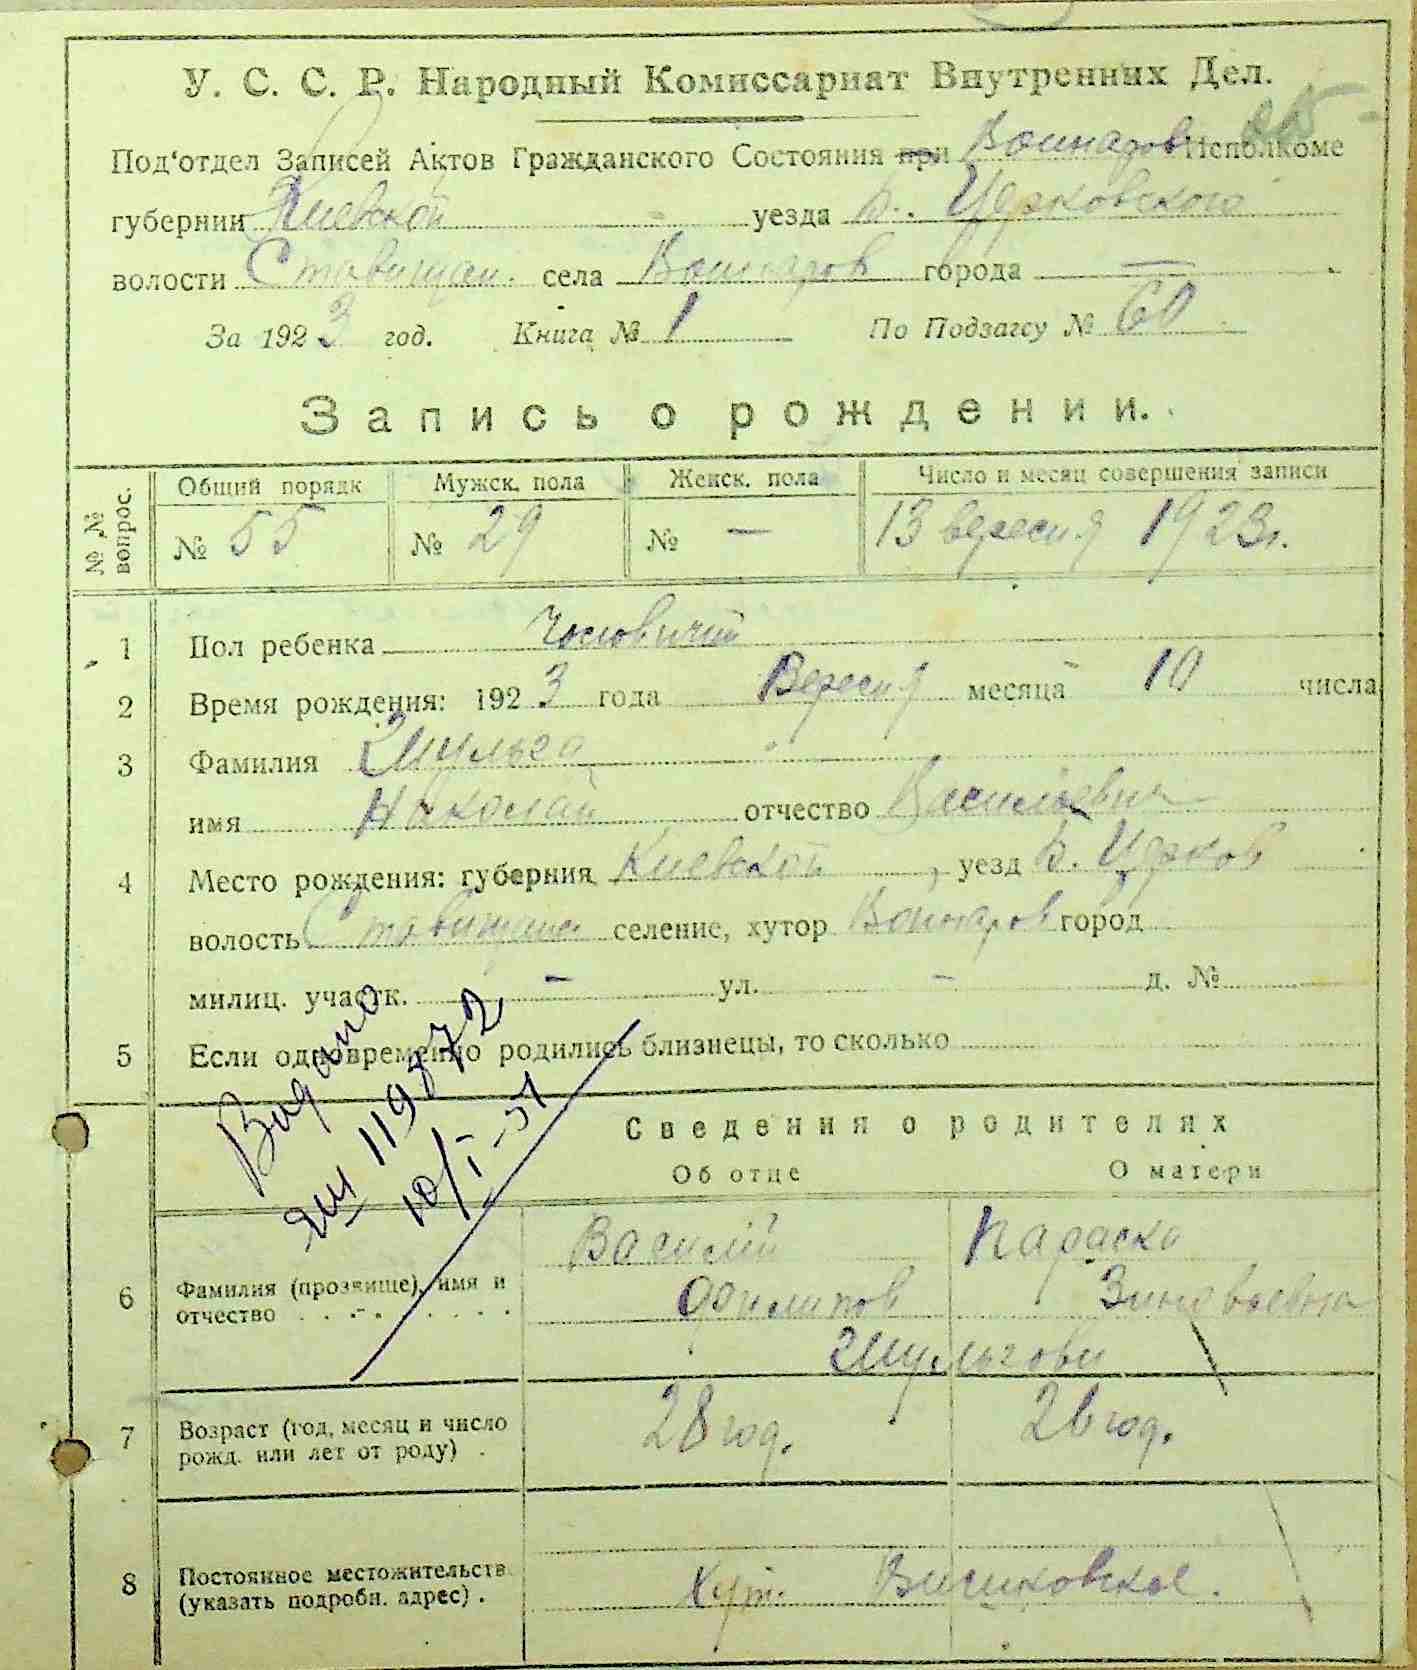 У. С. С. Р. Народный Комиссариат Внутренних Дел.
Под'отдел Записей Актов Гражданского Состояния при Воинаров. Исполкоме
губернии Киевской уезда Б. Церковского
волости Ставищан. села Воинаров города —
За 1923 год. Книга № 1 По Подзагсу № 60
Запись о рождении.
№ № вопрос. Общий порядк Мужск. пола Женск. пола Число и месяц совершения записи
№ 55 № 29 № — 13 вересня 1923г.
1 Пол ребенка Чоловичий
2 Время рождения: 1923 года Вересня месяца 10 числа
3 Фамилия Шульга
имя Николай отчество Васильевич
4 Место рождения: губерния Киевской, уезд Б. Церков
волость Ставищанс селение, хутор Воинаров город
милиц. участк. — ул. — д. №
5 Если одновременно родились близнецы, то сколько
Видано
ЯШ 119872
10/I-51
Сведения о родителях
Об отце О матери
Василий Параска
6 Фамилия (прозвище), имя и отчество Филипов Зиновьевна
Шульгови
7 Возраст (год, месяц и число рожд. или лет от роду) . 28 год. 26 год.
8 Постоянное местожительств (указать подробн. адрес) . Хут.